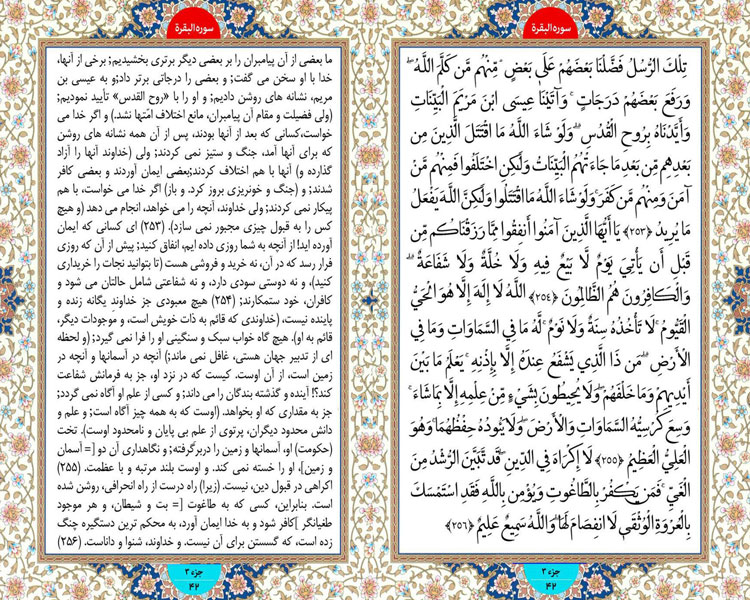 سورهالبقرة
تِلْكَ الرُّسُلُ فَضَّلْنَا بَعْضَهُمْ عَلَىٰ بَعْضٍ ۘ مِّنْهُم مَّن كَلَّمَ اللَّهُ ۖ
وَرَفَعَ بَعْضَهُمْ دَرَجَاتٍ ۚ وَآتَيْنَا عِيسَى ابْنَ مَرْيَمَ الْبَيِّنَاتِ
وَأَيَّدْنَاهُ بِرُوحِ الْقُدُسِ ۗ وَلَوْ شَاءَ اللَّهُ مَا اقْتَتَلَ الَّذِينَ مِن
بَعْدِهِم مِّن بَعْدِ مَا جَاءَتْهُمُ الْبَيِّنَاتُ وَلَٰكِنِ اخْتَلَفُوا فَمِنْهُم مَّنْ
آمَنَ وَمِنْهُم مَّن كَفَرَ ۚ وَلَوْ شَاءَ اللَّهُ مَا اقْتَتَلُوا وَلَٰكِنَّ اللَّهَ يَفْعَلُ
مَا يُرِيدُ ﴿٢٥٣﴾ يَا أَيُّهَا الَّذِينَ آمَنُوا أَنفِقُوا مِمَّا رَزَقْنَاكُم مِّن
قَبْلِ أَن يَأْتِيَ يَوْمٌ لَّا بَيْعٌ فِيهِ وَلَا خُلَّةٌ وَلَا شَفَاعَةٌ ۗ
وَالْكَافِرُونَ هُمُ الظَّالِمُونَ ﴿٢٥٤﴾ اللَّهُ لَا إِلَٰهَ إِلَّا هُوَ الْحَيُّ
الْقَيُّومُ ۚ لَا تَأْخُذُهُ سِنَةٌ وَلَا نَوْمٌ ۚ لَّهُ مَا فِي السَّمَاوَاتِ وَمَا فِي
الْأَرْضِ ۗ مَن ذَا الَّذِي يَشْفَعُ عِندَهُ إِلَّا بِإِذْنِهِ ۚ يَعْلَمُ مَا بَيْنَ
أَيْدِيهِمْ وَمَا خَلْفَهُمْ ۖ وَلَا يُحِيطُونَ بِشَيْءٍ مِّنْ عِلْمِهِ إِلَّا بِمَا شَاءَ ۚ
وَسِعَ كُرْسِيُّهُ السَّمَاوَاتِ وَالْأَرْضَ ۖ وَلَا يَئُودُهُ حِفْظُهُمَا ۚ وَهُوَ
الْعَلِيُّ الْعَظِيمُ ﴿٢٥٥﴾ لَا إِكْرَاهَ فِي الدِّينِ ۖ قَد تَّبَيَّنَ الرُّشْدُ مِنَ
الْغَيِّ ۚ فَمَن يَكْفُرْ بِالطَّاغُوتِ وَيُؤْمِن بِاللَّهِ فَقَدِ اسْتَمْسَكَ
بِالْعُرْوَةِ الْوُثْقَىٰ لَا انفِصَامَ لَهَا ۗ وَاللَّهُ سَمِيعٌ عَلِيمٌ ﴿٢٥٦﴾
جزء ۳
۴۲
سورهالبقرة
ما بعضی از آن پیامبران را بر بعضی دیگر برتری بخشیدیم; برخی از آنها،
خدا با او سخن می گفت; و بعضی را درجاتی برتر داد;و به عیسی بن
مریم، نشانه های روشن دادیم; و او را با «روح القدس» تأیید نمودیم;
(ولی فضیلت و مقام آن پیامبران، مانع اختلاف امّتها نشد.) و اگر خدا می
خواست،کسانی که بعد از آنها بودند، پس از آن همه نشانه های روشن
که برای آنها آمد، جنگ و ستیز نمی کردند; ولی (خداوند آنها را آزاد
گذارده و) آنها با هم اختلاف کردند;بعضی ایمان آوردند و بعضی کافر
شدند; و (جنگ و خونریزی بروز کرد. و باز) اگر خدا می خواست، با هم
پیکار نمی کردند; ولی خداوند، آنچه را می خواهد، انجام می دهد (و هیچ
کس را به قبول چیزی مجبور نمی سازد). (۲۵۳) ای کسانی که ایمان
آورده اید! از آنچه به شما روزی داده ایم، انفاق کنید; پیش از آن که روزی
فرار رسد که در آن، نه خرید و فروشی هست (تا بتوانید نجات را خریداری
کنید)، و نه دوستی سودی دارد، و نه شفاعتی شامل حالتان می شود و
کافران، خود ستمکارند; (۲۵۴) هیچ معبودی جز خداوندِ یگانه زنده و
پاینده نیست، (خداوندی که قائم به ذات خویش است، و موجودات دیگر،
قائم به او). هیچ گاه خواب سبک و سنگینی او را فرا نمی گیرد; (و لحظه
ای از تدبیر جهان هستی، غافل نمی ماند;) آنچه در آسمانها و آنچه در
زمین است، از آن اوست. کیست که در نزد او، جز به فرمانش شفاعت
کند؟! آینده و گذشته بندگان را می داند; و کسی از علم او آگاه نمی گردد;
جز به مقداری که او بخواهد. (اوست که به همه چیز آگاه است; و علم و
دانش محدود دیگران، پرتوی از علم بی پایان و نامحدود اوست). تخت
(حکومت) او، آسمانها و زمین را دربرگرفته; و نگاهداری آن دو [= آسمان
و زمین]، او را خسته نمی کند. و اوست بلند مرتبه و با عظمت. (۲۵۵)
اکراهی در قبول دین، نیست. (زیرا) راه درست از راه انحرافی، روشن شده
است. بنابراین، کسی که به طاغوت [= بت و شیطان، و هر موجود
طغیانگر ]کافر شود و به خدا ایمان آورد، به محکم ترین دستگیره چنگ
زده است، که گسستن برای آن نیست. و خداوند، شنوا و داناست. (۲۵۶)
جزء ۳
۴۲